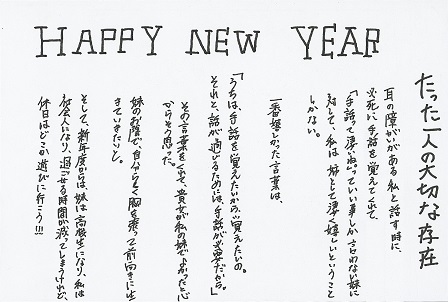 HAPPY NEW YEAR
たった一人の大切な存在
耳の障がいがある私と話す時に、
必死に手話を覚えてくれて、
「手話って凄いね」っていい事しか言わない妹に
対して、私は姉として凄く嬉しいということ
しかない。
一番嬉しかった言葉は、
「うちは、手話を覚えたいから、覚えたいの。
それと、話が通じるためには、手話が必要だから。」
その言葉を出て、貴女が私の妹でよかったと心
からそう思った。
妹のお陰で、自分らしく胸を張って前向きに生
きていきたいと。
そして、新年度からは、妹は高校生になり、私は
社会人になり、過ごせる時間が減ってしまうけれど、
休日はどこか遊びに行こう!!!